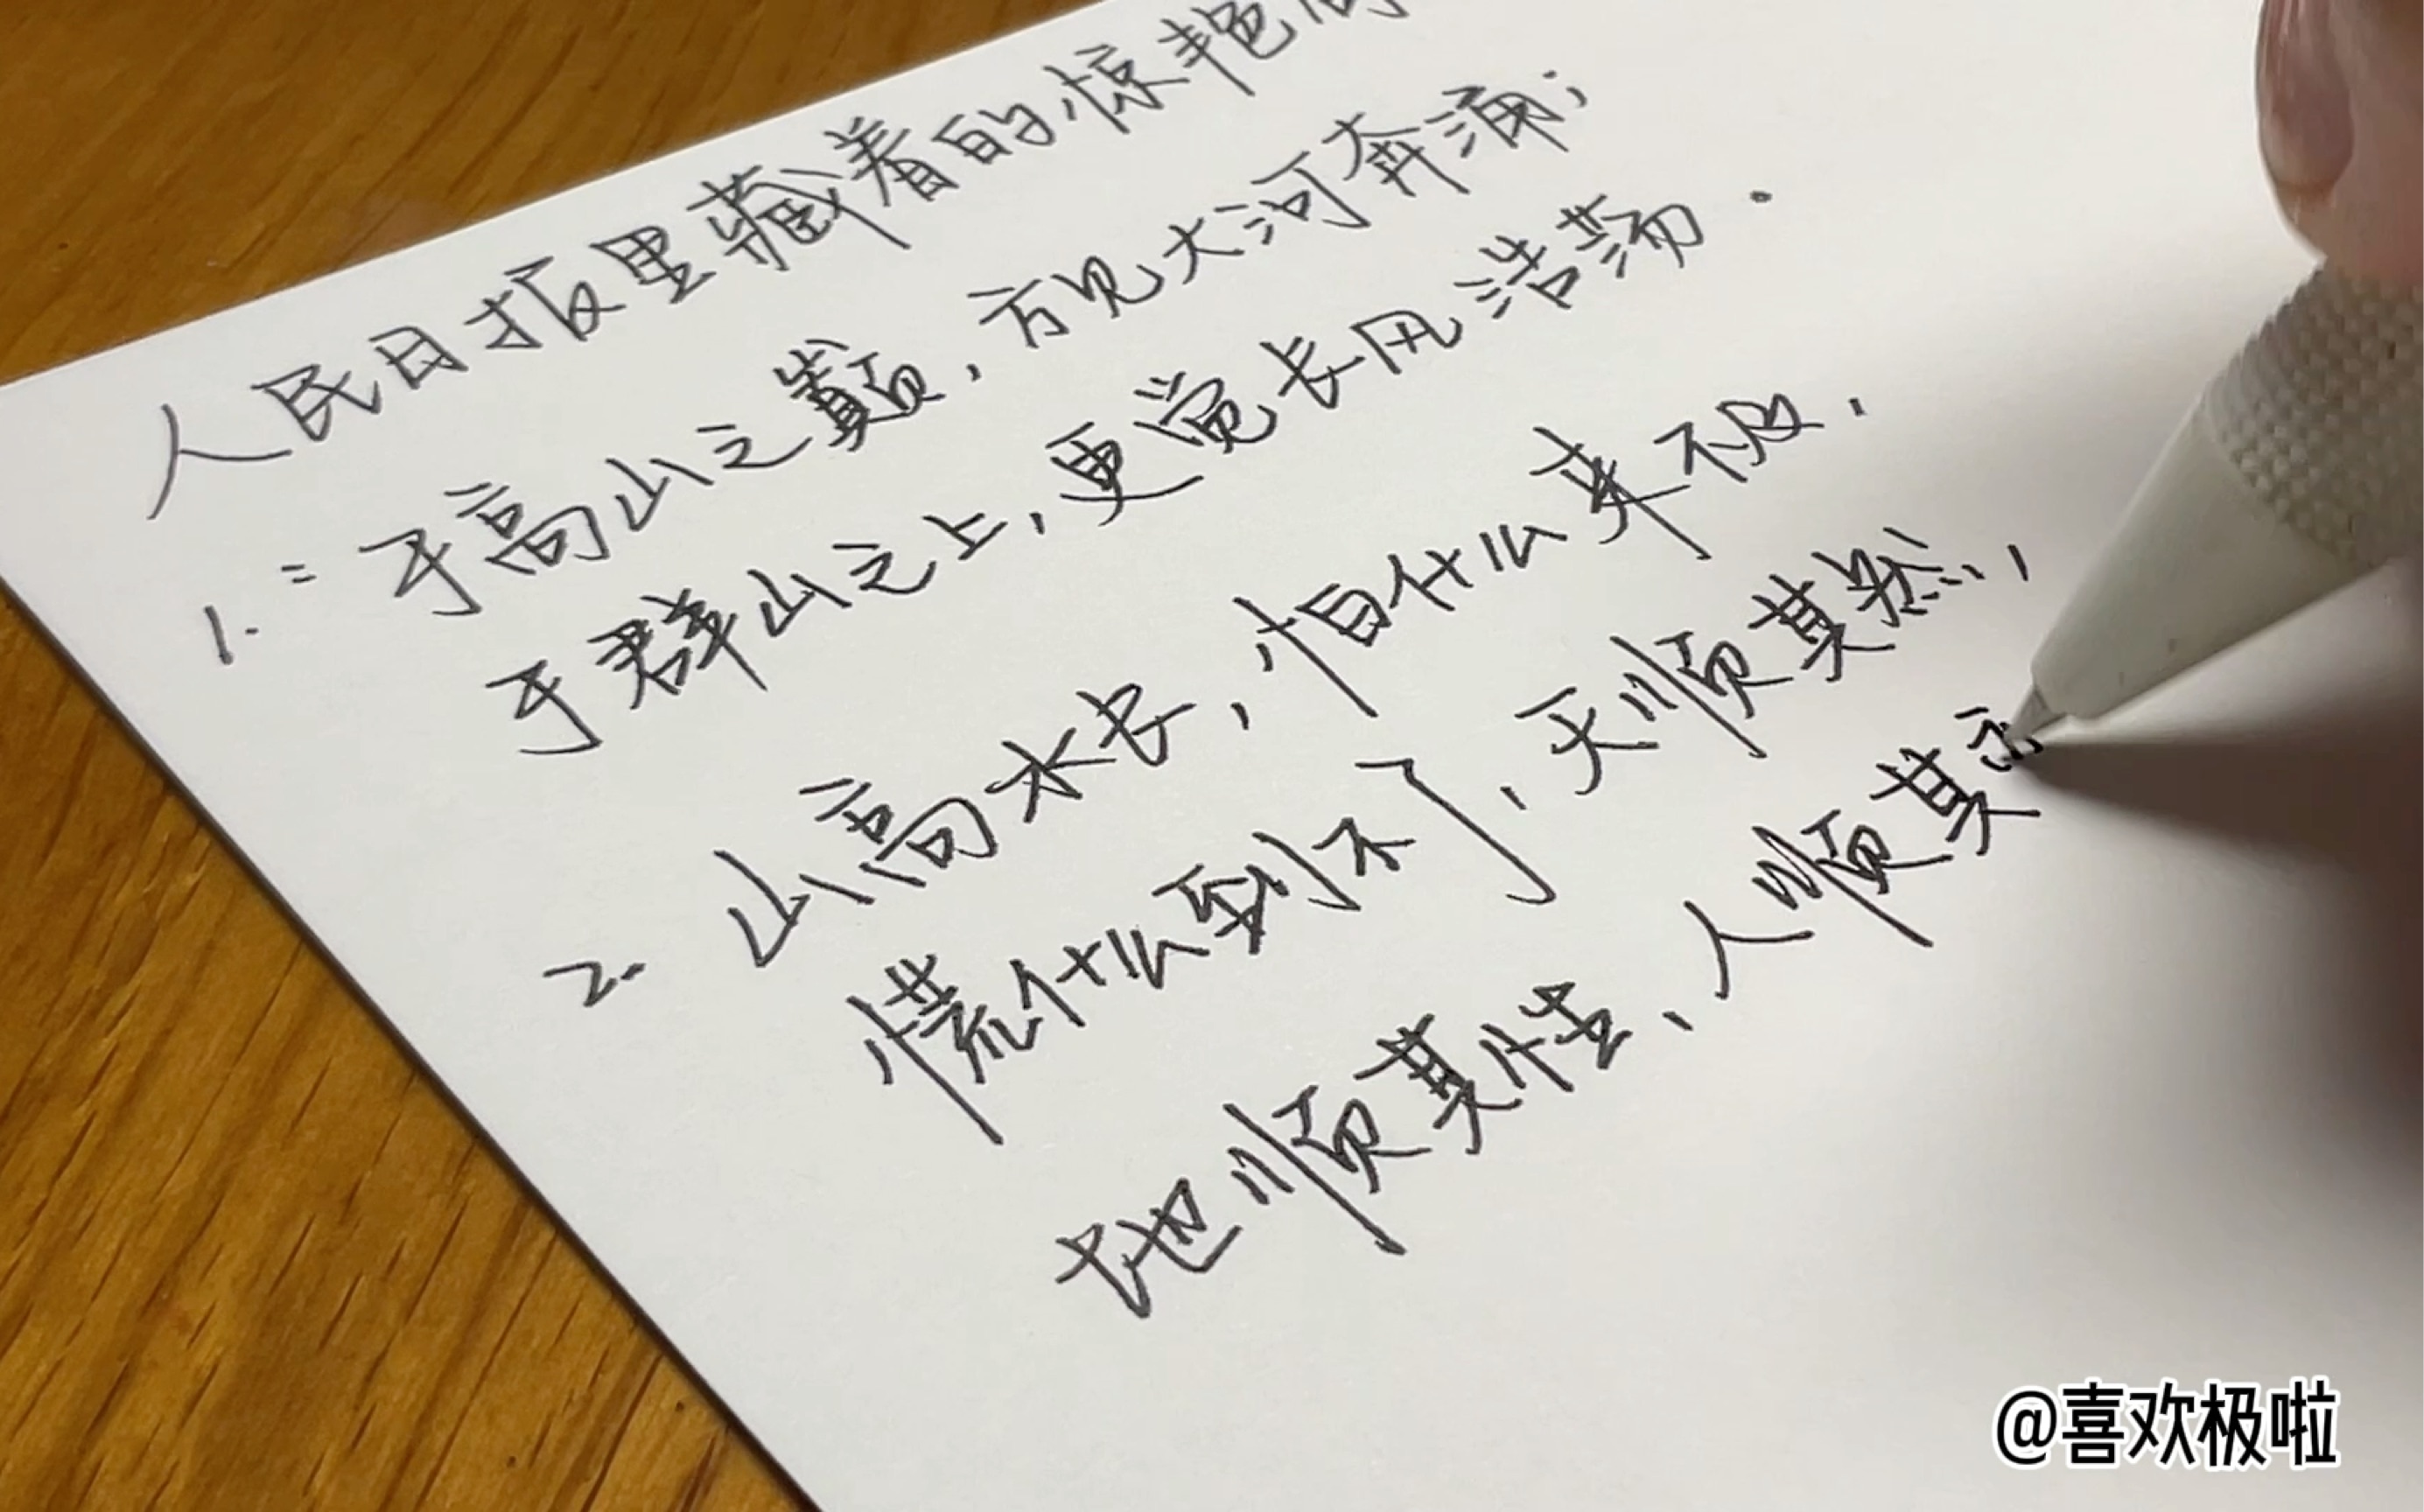 人民日报里藏着的惊艳
1.：于高山之巅，方见大河奔涌；
于群山之上，更觉长风浩荡．
2. 山高水长，怕什么来不及，
慌什么到不了，天顺其然，
地顺其性，人顺其
@喜欢极啦